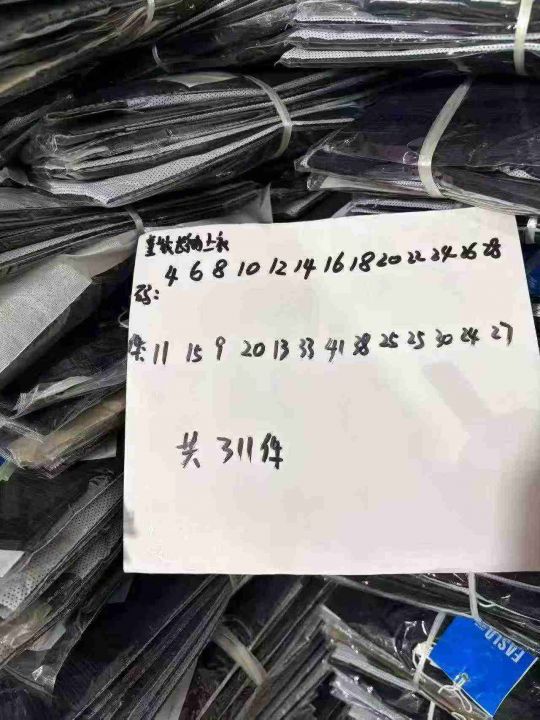 长袖上衣
码: 4 6 8 10 12 14 16 18 20 22 24 26 28
件: 11 15 9 20 13 33 41 38 25 25 30 24 27
共 311件